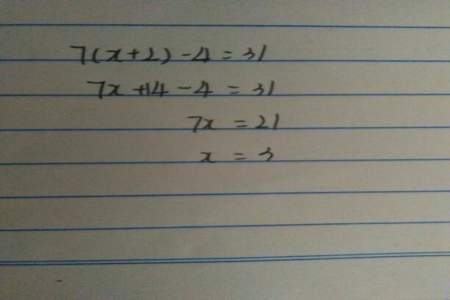 7(x+2)-4=31
7x+14-4=31
7x=21
x=3